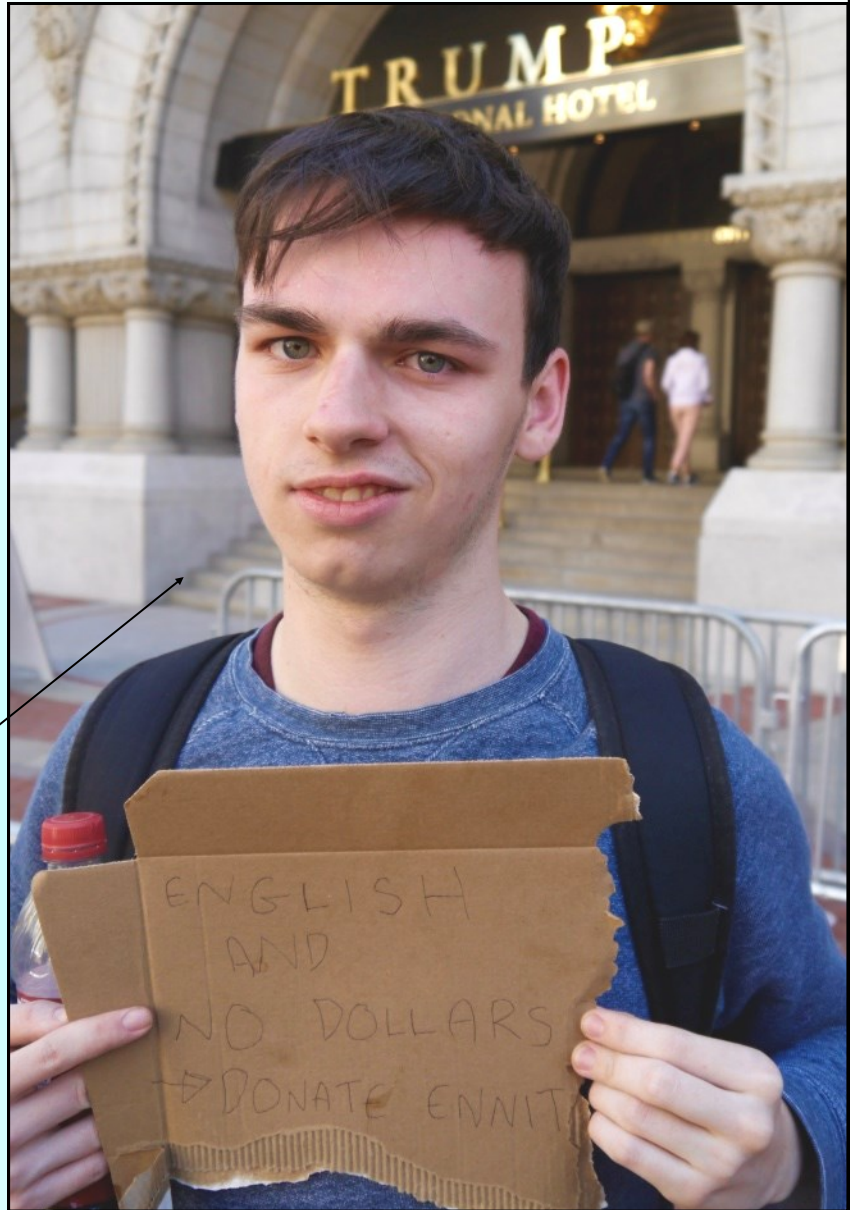 TRUMP
ONAL HOTEL
ENGLISH
AND
NO DOLLARS
→ DONATE ENNIT